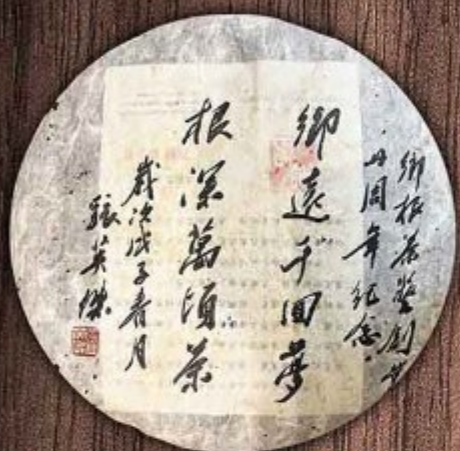 鄉根茶藝創業
廿周年紀念
鄉遠千回夢
根深萬頃茶
歲次戊子春月
張英傑